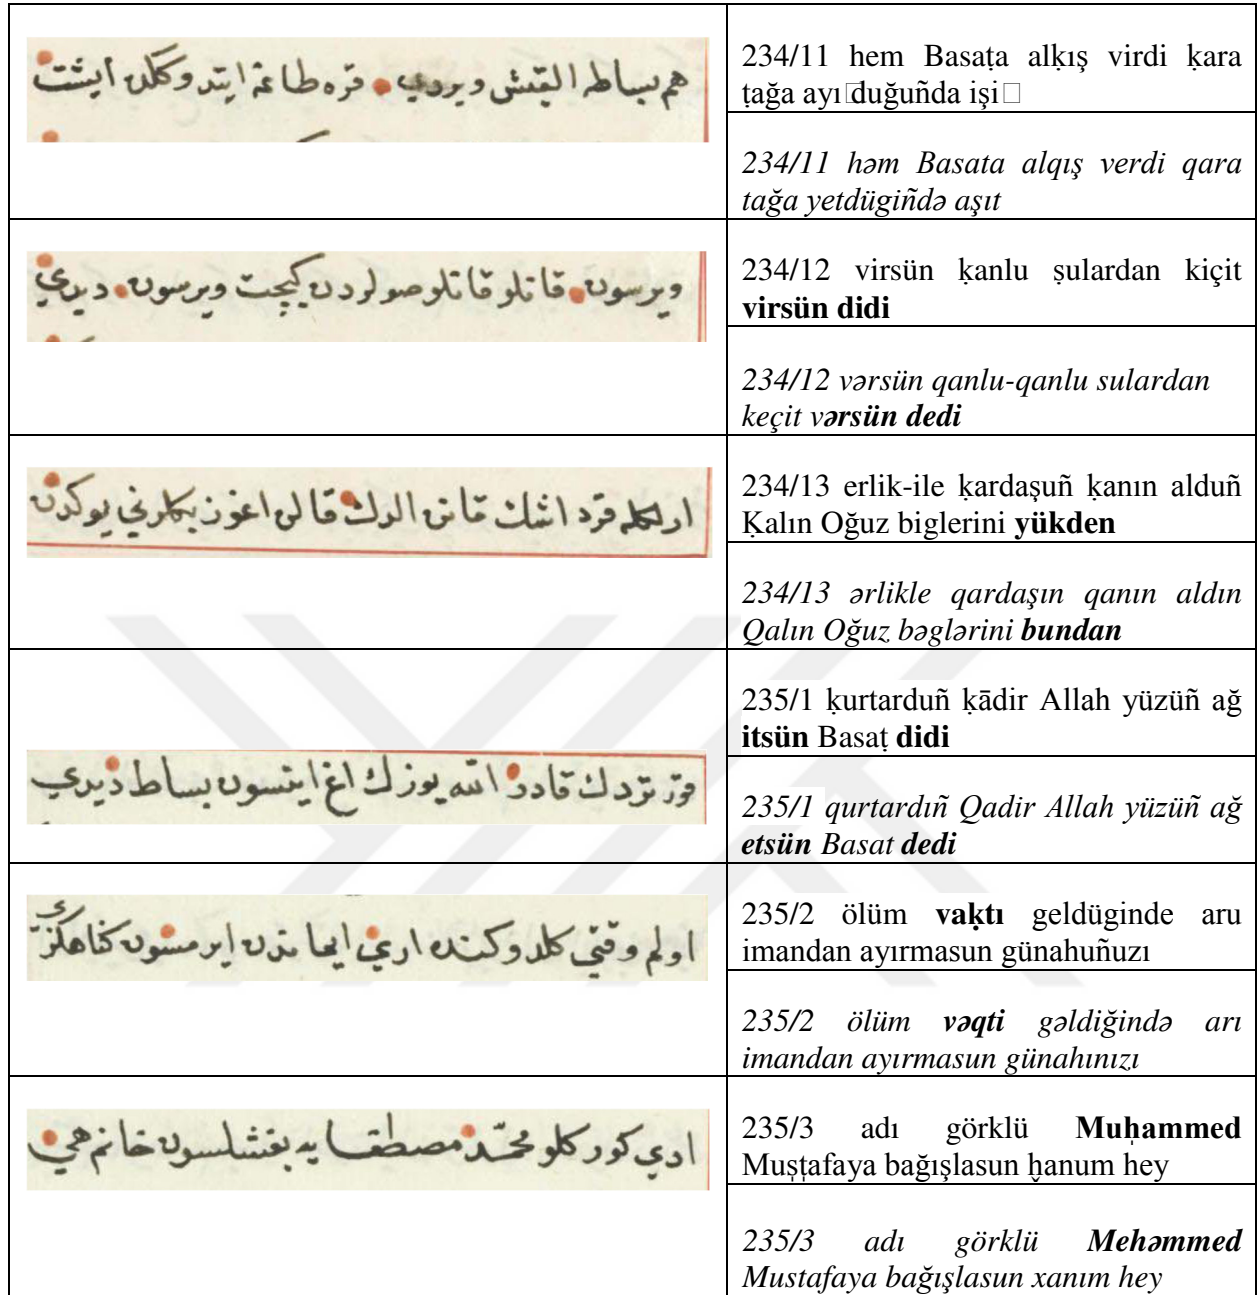 هم بساطه القيش ويردي قره طاغه ايتدوكلن ايشت
234/11 hem Basaṭa alḳış virdi ḳara
ṭağa ayı□duğuñda işi□
234/11 həm Basata alqış verdi qara
tağa yetdügiñdə aşıt
ويرسون قانلو قانلو صولردن كيجيت ويرسون ديدي
234/12 virsün ḳanlu ṣulardan kiçit
virsün didi
234/12 vərsün qanlu-qanlu sulardan
keçit vərsün dedi
ارلكله قرداشك قانن الدك قالن اغوز بكلرني يوكدن
234/13 erlik-ile ḳardaşuñ ḳanın alduñ
Ḳalın Oğuz biglerini yükden
234/13 ərlikle qardaşın qanın aldın
Qalın Oğuz bəglərini bundan
قورتردك قادر الله يوزك اغ ايتسون بساط ديدي
235/1 ḳurtarduñ ḳādir Allah yüzüñ ağ
itsün Basaṭ didi
235/1 qurtardıñ Qadir Allah yüzüñ ağ
etsün Basat dedi
اولم وقتي كلدوكنده اري ايماندن ايرمسون كناهكزي
235/2 ölüm vaḳtı geldüginde aru
imandan ayırmasun günahuñuzı
235/2 ölüm vəqti gəldiğində arı
imandan ayırmasun günahınızı
ادي كوركلو محمّد مصطفايه بغشلسون خانم هي
235/3 adı görklü Muḥammed
Muṣṭafaya bağışlasun ḫanum hey
235/3 adı görklü Mehəmmed
Mustafaya bağışlasun xanım hey